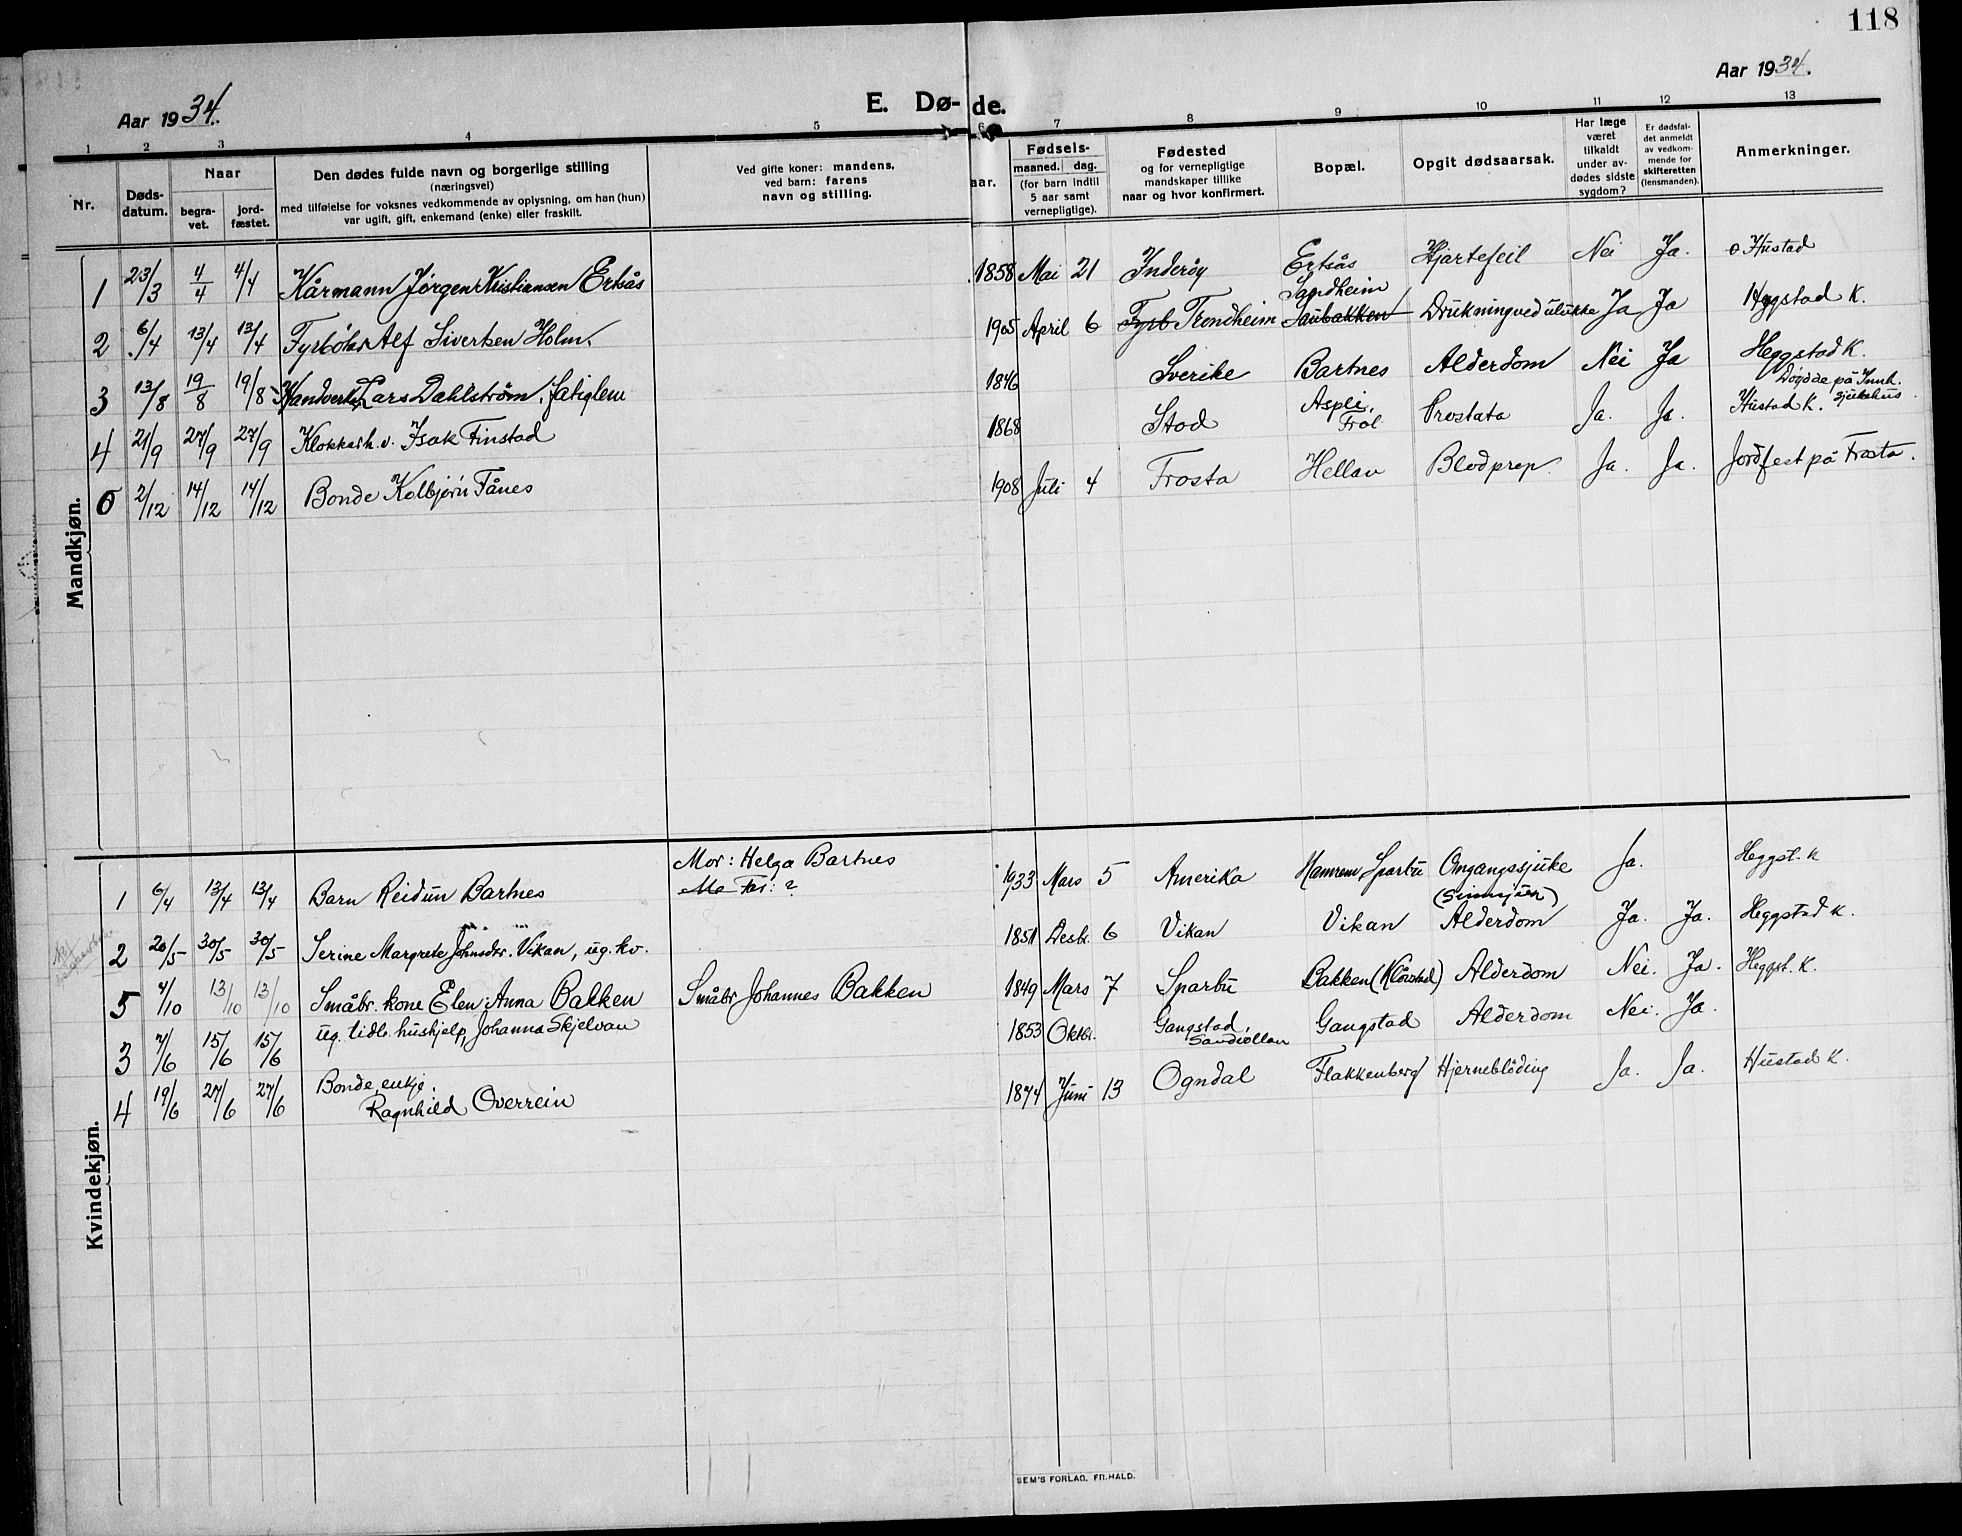 118
Aar 1934.
Aar 1934.
E. Dø-de.
1 2 3 4 5 6 7 8 9 10 11 12 13
Nr.
Døds-datum.
Naar
begra-vet.
jord-fæstet.
Den dødes fulde navn og borgerlige stilling
(næringsvei)
med tilføielse for voksnes vedkommende av oplysning, om han (hun)
var ugift, gift, enkemand (enke) eller fraskilt.
Ved gifte koner: mandens,
ved barn: farens
navn og stilling.
aar.
Fødsels-
maaned. dag.
(for barn indtil
5 aar samt
vernepligtige).
Fødested
og for vernepligtige
mandskaper tillike
naar og hvor konfirmert.
Bopæl.
Opgit dødsaarsak.
Har læge
været
tilkaldt
under av-
dødes sidste
sygdom?
Er dødsfal-
det anmeldt
av vedkom-
mende for
skifteretten
(lensmanden).
Anmerkninger.
Mandkjøn.
1 23/3 4/4 4/4 Kårmann Jørgen Kristiansen Ertsås 1858 Mai 21 Inderøy Ertsås Hjartefeil Nei Ja. Hustad
Sandheim
2 6/4 13/4 13/4 Fyrbøter Alf Sivertsen Holm. 1905 April 6 Fyrb Trondheim Saubakken Drukning ved ulukke Ja Ja Heggstad K.
3 13/8 19/8 19/8 Handverkar Lars Dahlstrøm, fatiglem 1846 Sverike Bartnes Alderdom Nei Ja Heggstad K.
4 21/9 27/9 27/9 Klokkar h.v. Isak Finstad 1868 Stod Aspli, Frol Prostata Ja. Ja. Døydde på Innh. sjukehus. Hustad K.
5 2/12 14/12 14/12 Bonde Kolbjørn Tånes 1908 Juli 4 Frosta Hellan Blodprop. Ja. Ja. Jordfest på Frosta.
Kvindekjøn.
Mor: Helga Bartnes
1 6/4 13/4 13/4 Barn Reidun Bartnes Mo Far: ? 1933 Mars 5 Amerika Hamrem Sparbu Omgangssjuke Ja. Heggst. K
2 20/5 30/5 30/5 Serine Margrete Johnsdtr. Vikan, ug. kv. 1851 Desbr. 6 Vikan Vikan Alderdom Ja. Ja. Heggstad K.
5 4/10 13/10 13/10 Småbr. kone Elen Anna Bakken Småbr Johannes Bakken 1849 Mars 7 Sparbu Bakken (Klørstad) Alderdom Nei. Ja. Heggst. K.
3 7/6 15/6 15/6 ug. tidl. hushjelp, Johanna Skjelvan 1853 Oktbr. Gangstad, Sandvollan Gangstad Alderdom Nei. Ja.
4 19/6 27/6 27/6 Bonde enkje.
Ragnhild Overrein 1874 Juni 13 Ogndal Flakkenberg Hjerneblöding Ja. Ja. Hustad K.
SEM'S FORLAG, FR. HALD.